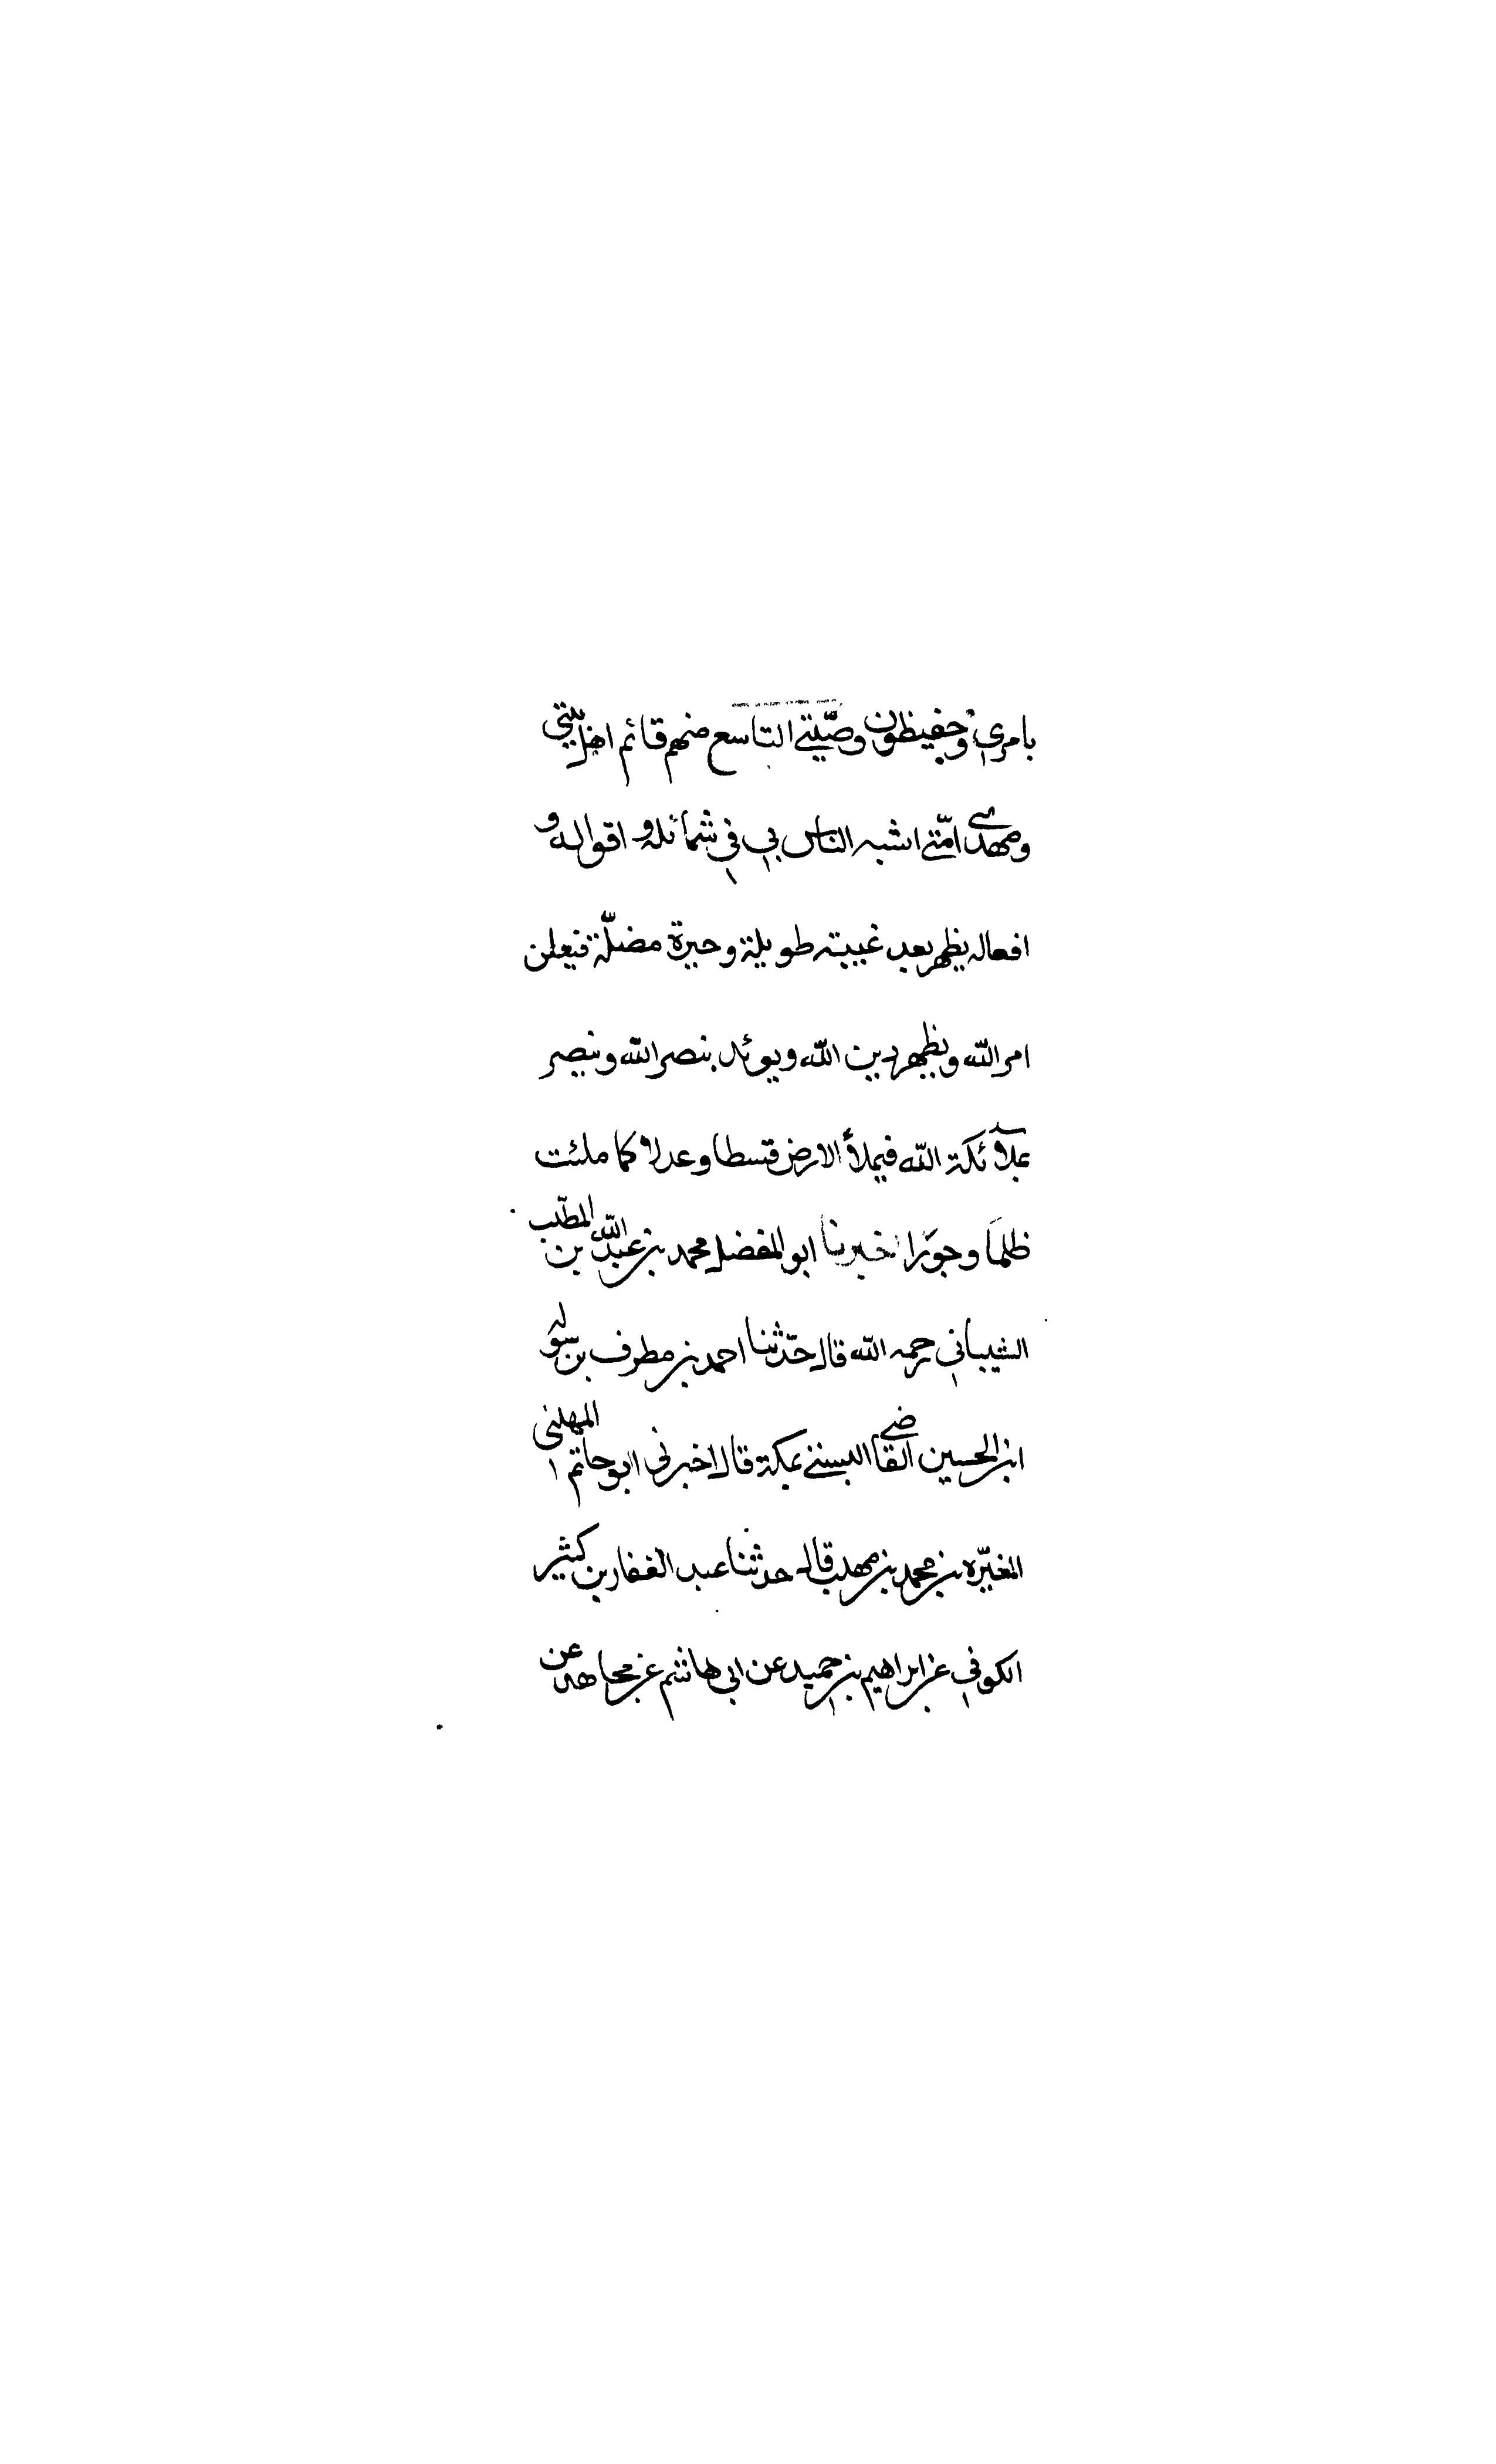 بامري ويحفيظون وصيّتي التاسع منهم قائم اهل بيتي
ومهدي امّتي اشبه الناس بي في شمائله واقواله و
افعاله يظهر بعد غيبته طويلة وحيرة مضلّة فيعلن
امر الله ويظهر دين الله ويوئد بنصر الله وينصر
بملآئكة الله فيملأ الارض قسطا وعدلا كما ملئت
ظلما وجورا اخبرنا ابو المفضل محمد بن عبد الله بن المطّلب
الشيباني رحمه الله قال حدّثنا احمد بن مطرف بن سوار
ابن الحسين القاضي البستي بمكة قال اخبرني ابو حاتم المهلبى
المغيّره بن محمد بن مهلب قال حدثنا عبد الغفار بن كثير
الكوفي عن ابراهيم بن حميد عن ابي هاشم عن مجاهد عن